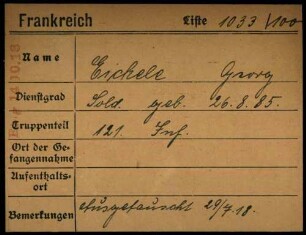 Frankreich Liste 1033/100
Name Eichele Georg
Dienstgrad Sold. geb. 26.8.85.
Truppenteil 121. Inf.
Ort der Ge-
fangennahme
Aufenthalts-
ort
Bemerkungen Ausgetauscht 29/7.18.